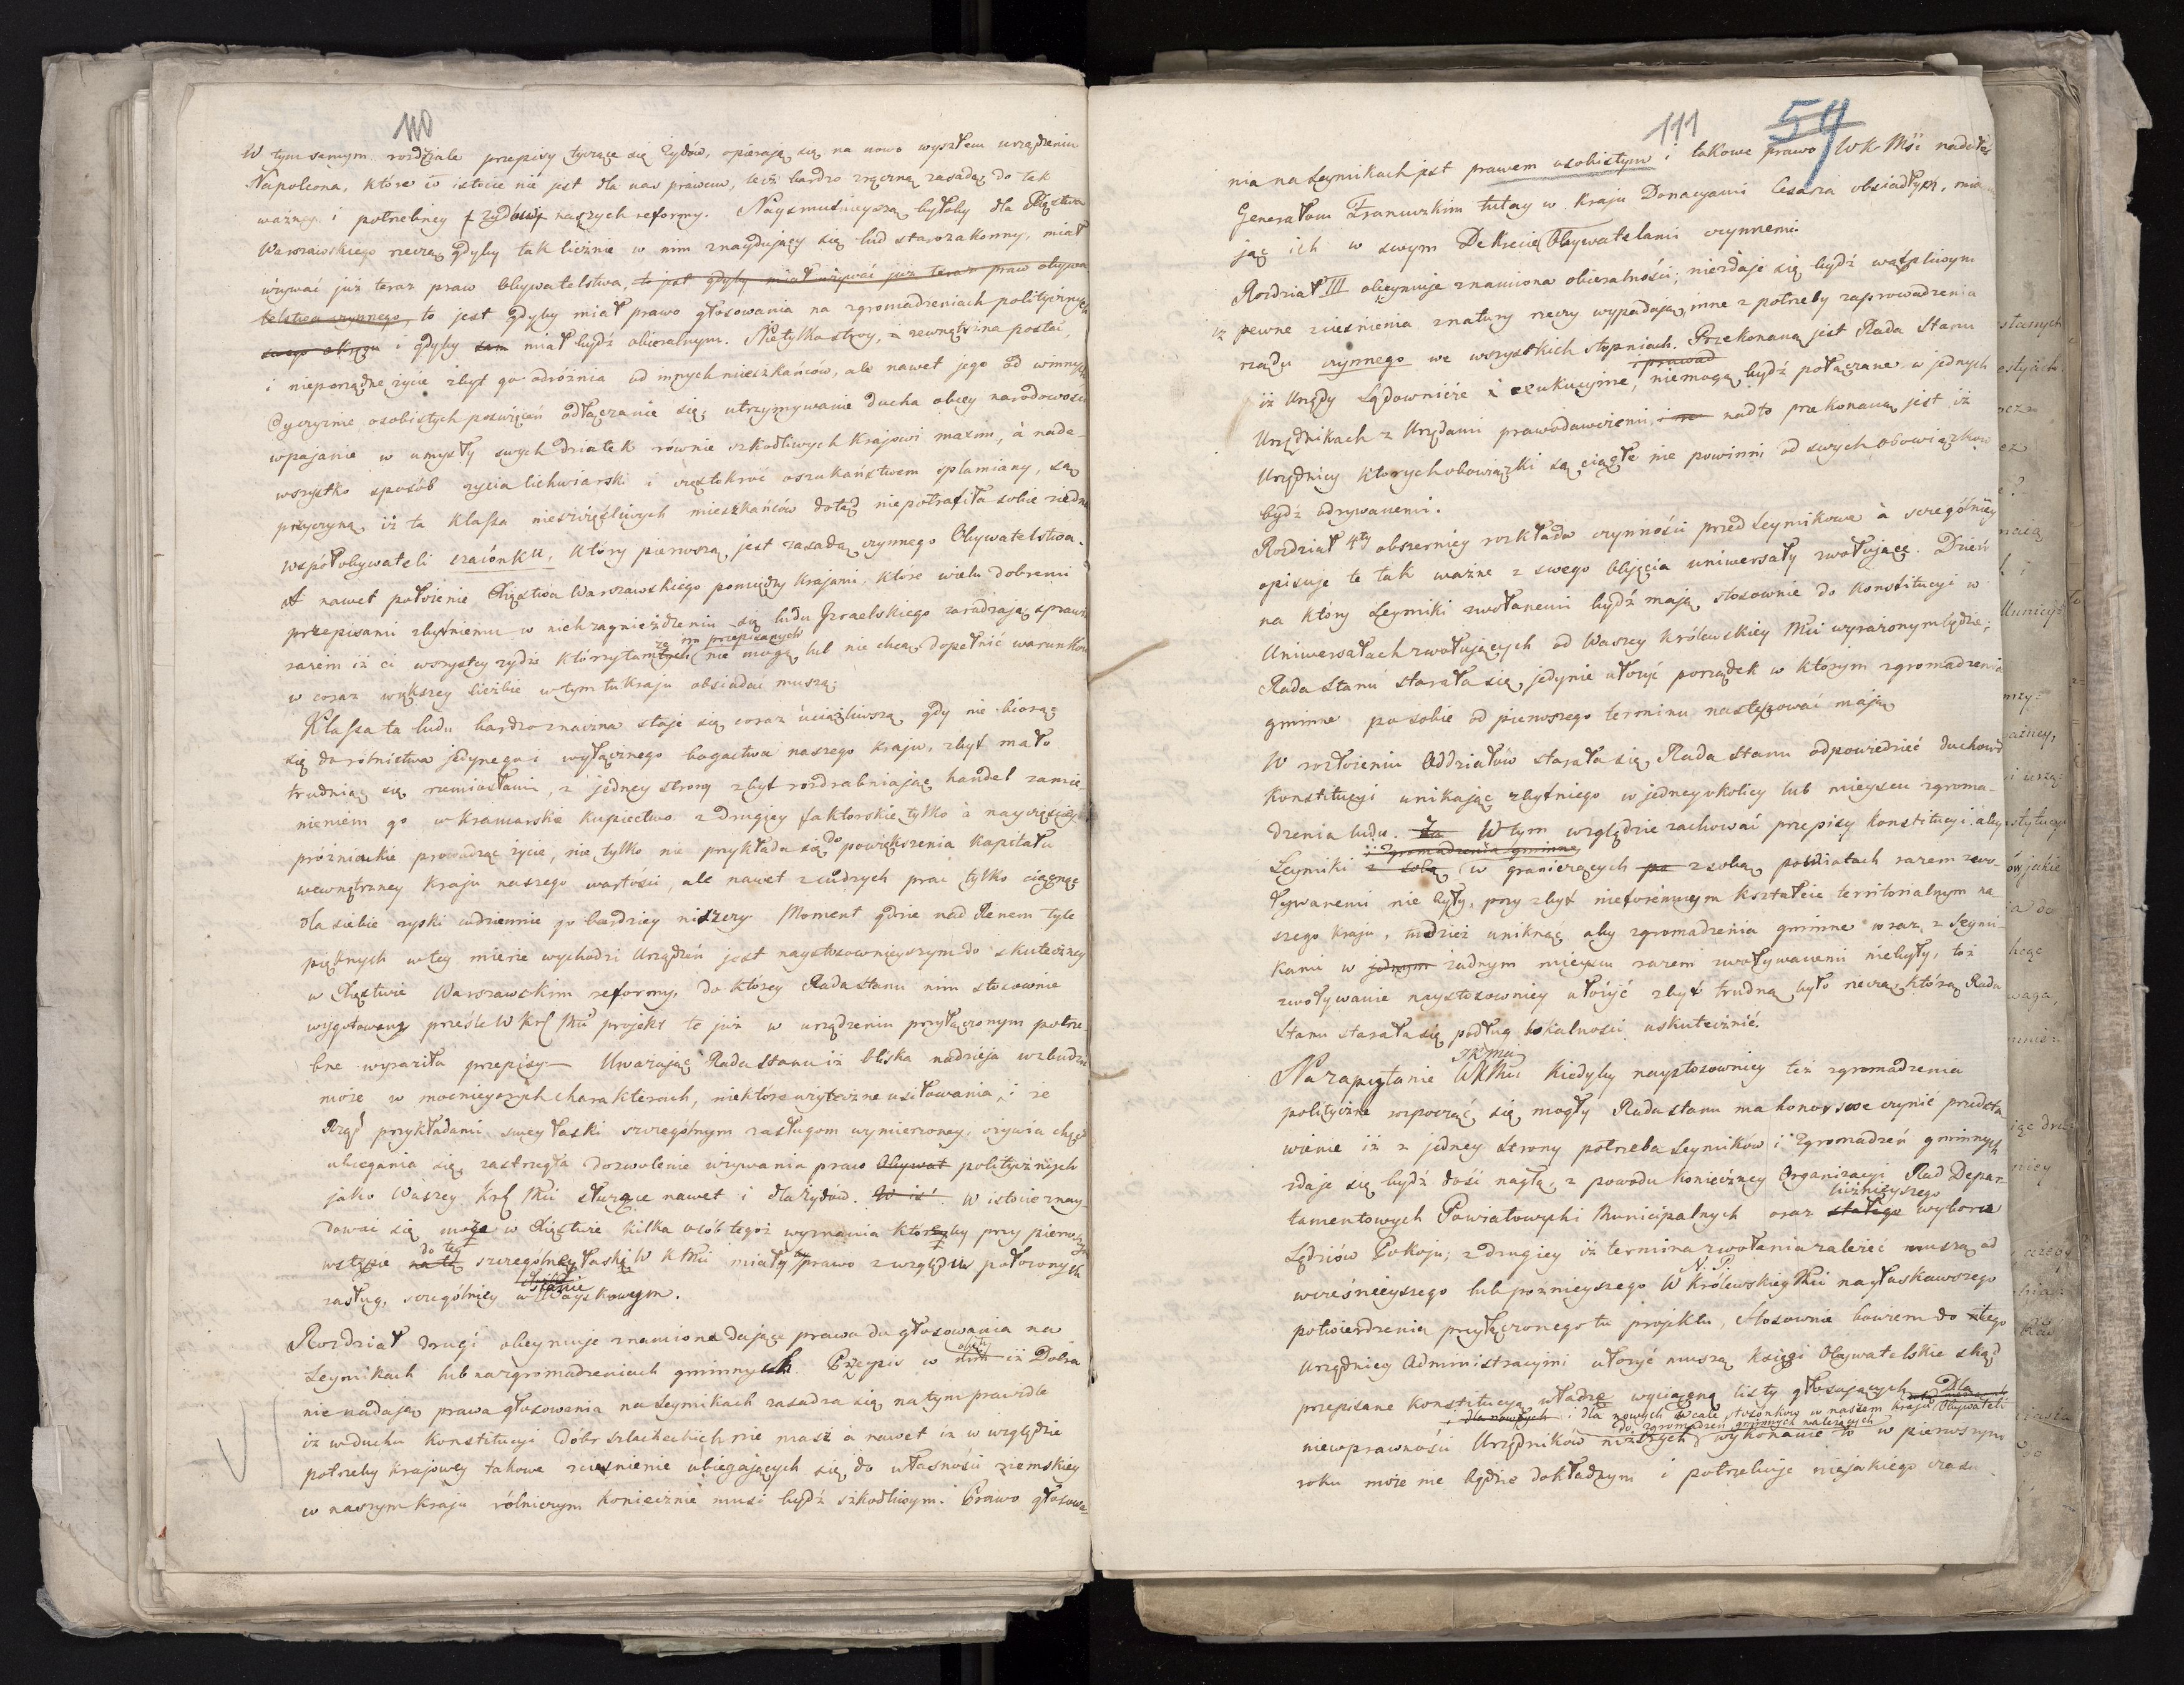 110
W tym samym rozdziale przepisy tyczące się Żydów, opierają się na nowo wyszłem urządzeniu
Napoleona, które w istocie nie jest dla nas prawem, lecz bardzo zręczną zasadą do tak
ważney i potrzebney Żydów naszych reformy. Naysmutnieyszą byłoby dla Xięstwa
Warszawskiego rzeczą gdyby tak licznie w nim znayduiący się lud starozakonny, miał
używać już teraz praw Obywatelstwa, to jest gdyby miał używać już teraz praw obywa
telstwa czynnego, to jest gdyby miał prawo głosowania na zgromadzeniach politycznych
swego obrzędu i gdyby sam miał bydź obieralnym. Nietylko stroy, i zewnętrzna postać,
i nieporządne życie zbyt go odróżnia od innych mieszkańców, ale nawet jego od winnych
Oyczyznie osobistych poświęceń odłączanie się, utrzymywanie ducha obcey narodowości
wpajanie w umysły swych dziatek równie szkodliwych krajowi maxim, à nade-
wszystko sposób życia lichwiarski i częstokroć oszukaństwem splamiany, są
przyczyną iż ta klassa nieszczęśliwych mieszkańców dotąd niepotrafiła sobie zjedna
współobywateli szacónku, który pierwszą jest zasadą czynnego Obywatelstwa.
A nawet położenie Xięstwa Warszawskiego pomiędzy krajami, które wielu dobremi
przepisami zbytniemu w nich zagnieżdżeniu się ludu Izraelskiego zaradzają sprawia
zarem iż ci wszyscy żydzi którzy tamtych nie mogą lub nie chcą dopełnić warunków
im przepisanych
w coraz większey liczbie w tym tu kraju obsiadać muszą.
Klassa ta ludu bardzo znaczna staje się coraz uciążliwszą gdy nie biorąc
się do rólnictwa jedynego i wyłącznego bogactwa naszego kraju, zbyt mało
trudniąc się rzemiosłami, z jedney strony zbyt rozdrabniając handel zamie
nieniem go w kramarskie kupiectwo z drugiey faktorskie tylko à nayczęściey
próżniackie prowadząc życie, nie tylko nie przykłada się do powiększenia kapitału
wewnętrzney kraju naszego wartości, ale nawet z cudzych prac tylko ciągnąc
dla siebie zyski codziennie go bardziey niszczy. Moment gdzie nad Renem tyle
pięknych w tey mierze wychodzi Urządzeń jest naystosownieyszym do skuteczney
w Xięstwie Warszawskim reformy, do którey Rada Stanu nim stosownie
wygotowany prześle W Krl Mci projekt te już w urządzeniu przyłączonym potrze-
bne wyraziła przepisy— Uważając Rada Stanu iż bliska nadzieja wzbudzić
może w mocnieyszych charakterach, niektóre użyteczne usiłowania, i że
Rząd przykładami swey łaski szczególnym zasługom wymierzoney, ożywia chęć
ubiegania się zastrzegła dozwolenie używania praw Obywat politycznych
jako Waszey Krl Mci służące nawet i dla Żydów. W is W istocie znay-
dować się może w Xięstwie kilka osób tegoż wyznania któreby przy pierwszym
wstępie na tę do tey szczególney łaski W K Mci miały prawo z względu położonych
zasług, szczególniey w stanie Woyskowym.
Rozdział drugi obeymuje znamiona dające prawa do głosowania na
Seymikach lub na zgromadzeniach gminnych. Przepis w nim iż Dobra
nie nadają prawa głosowania na Seymikach zasadza się na tym prawidle
iż w duchu Konstitucyi dóbr szlacheckich nie masz a nawet iż w względzie
potrzeby krajowey takowe scieśnienie ubiegających się do własności ziemskiey
w naszym kraju rólniczym koniecznie musi bydź szkodliwym. Prawo głosowa=
111
54
nia na Seymikach jest prawem osobistym i takowe prawo W K Mść nadałeś
Generałom Franuzkim tutay w kraju Donacyami Cesarza obsiadłym, mianu
jąc ich w swym Dekrecie Obywatelami czynnemi.
Rozdział III obeymuje znamiona obieralności; niezdaje się bydź wątpliwym
iż pewne scieśnienia z natury rzeczy wypadają, inne z potrzeby zaprowadzenia
rządu czynnego we wszystkich stopniach. Przekonaną jest Rada Stanu
iż Urzędy Sądownicze i exekucyjne, niemogą bydź połączane w jednych
Urzędnikach z Urzędami prawodawczemi, nadto przekonaną jest iż
Urzędnicy których obowiązki są ciągłe nie powinni od swych obowiązków
bydź odrywanemi.
Rozdział 4ty obszerniey rozkłada czynności przed Seymikowe à szczególniey
opisuje te tak ważne z swego objęcia uniwersały zwołujące. Dzień
na który Seymiki zwołanemi bydź mają stosownie do Konstitucyi w
Uniwersałach zwołujących od Waszey Królewskiey Mci wyrażonym będzie;
Rada Stanu starała się, jedynie ułożyć porządek w którym zgromadzenia
gminne po sobie od pierwszego terminu następować mają
W rozłożeniu Oddziałów starała się Rada Stanu odpowiedzieć duchowi
Konstitucyi unikając zbytniego w jedney okolicy lub mieyscu zgroma-
dzenia ludu. Za W tym względzie zachować przepisy Konstitucyi aby
Seymiki i zgromadzenia gminne z sobą w graniczących po z sobą powiatach razem zwo-
ływanemi nie były, przy zbyt nieforemnym kształcie territorialnym na
szego kraju, tudzież uniknąć aby zgromadzenia gminne wraz z Seymi-
kami w jednym żadnym mieyscu razem zwoływanemi niebyły, toż
zwoływanie naystosowniey ułożyć zbyt trudną było rzeczą, którą Rada
Stanu starała się podług lokalności uskutecznić.
Na zapytanie WKMci Kiedyby naystosowniey też zgromadzenia
polityczne rozpocząć się mogły Rada Stanu ma honor swe czynić przedsta
wienie iż z jedney strony potrzeba Seymików i Zgromadzeń gminnych
zdaje się bydź dość nagłą, z powodu konieczney Organizacyi Rad Depar-
tamentowych Powiatowych i Municipalnych oraz stałego licznieyszego wyboru
Sędziów Pokoju; z drugiey iż termina zwołania zależeć muszą od
wcześnieyszego lub późnieyszego W Królewskiey Mci N. P. nayłaskawszego
potwierdzenia przyłączonego tu projektu, Stosownie bowiem do niego
Urzędnicy Administracyjni ułożyć muszą księgi Obywatelskie skąd
przepisane Konstitucyą władze wyciągną listy głosujących Dla
i dla nowych wcale stosónków w naszem kraju Obywateli
do zgromadzeń gminnych należących
niewprawności Urzędników niższych wykonanie to w pierwszym
roku może nie będzie dokładnym i potrzebuje niejakiego czasu